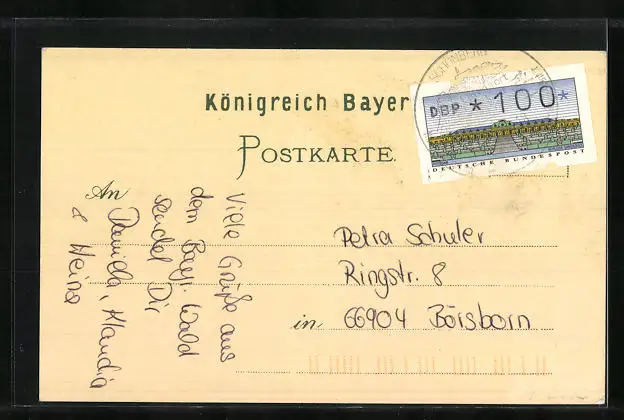 SCHÖNBERG
Königreich Bayer
POSTKARTE.
DBP * 100 *
DEUTSCHE BUNDESPOST
An
Viele Grüße aus
dem Bayr. Wald
sendet Dir
Daniela, Klaudia
& Heinz
Petra Schuler
Ringstr. 8
in 66904 Börsborn